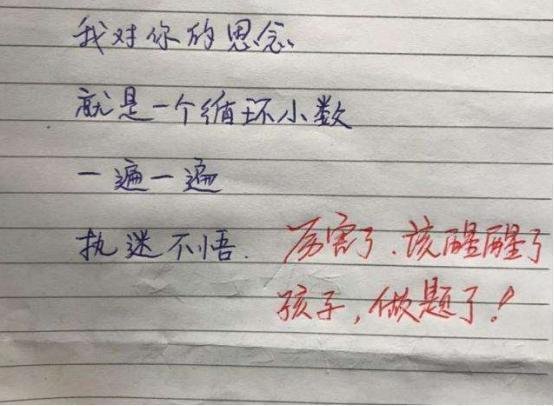 我对你的思念
就是一个循环小数
一遍一遍
执迷不悟. 厉害了.该醒醒了
孩子,做题了!